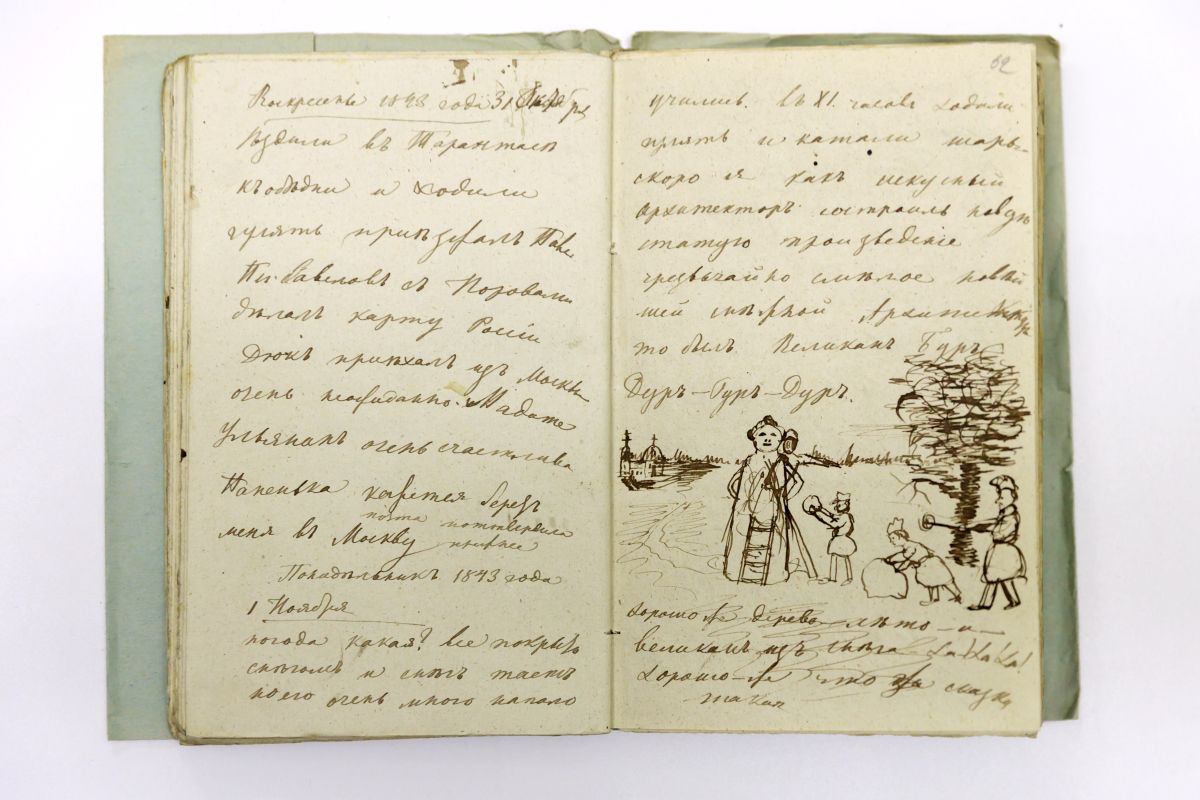 Воскресенье 1843 года 31 Октября
Ѣздили въ Тарантасѣ
къ обѣдни и ходили
гулять приѣзжалъ Павелъ
съ
дѣлалъ карту Росіи
Дюкъ приѣхалъ изъ Москвы
очень неожиданно. Мадате
Ульянанъ очень счастлива
Папенька кажется беретъ
меня въ Москву
Понадѣльникъ 1843 года
1 Ноября
погода какая? все покрыто
снѣгомъ и снѣгъ таетъ
но его очень много напало
62
учились. въ XI часовъ ходили
гулять и катали шары.
скоро я какъ искусный
Архитекторъ состроилъ
статую произведеніе
чрезвычайно смѣлое новѣй
шей снѣжной Архитектуры
то былъ Великанъ Буръ
Дуръ-Гуръ-Дуръ.
хорошо ль дерево лѣто-и-
великанъ изъ снѣга Ха! Ха! Ха!
Хорошо-ль что за сказка
такая